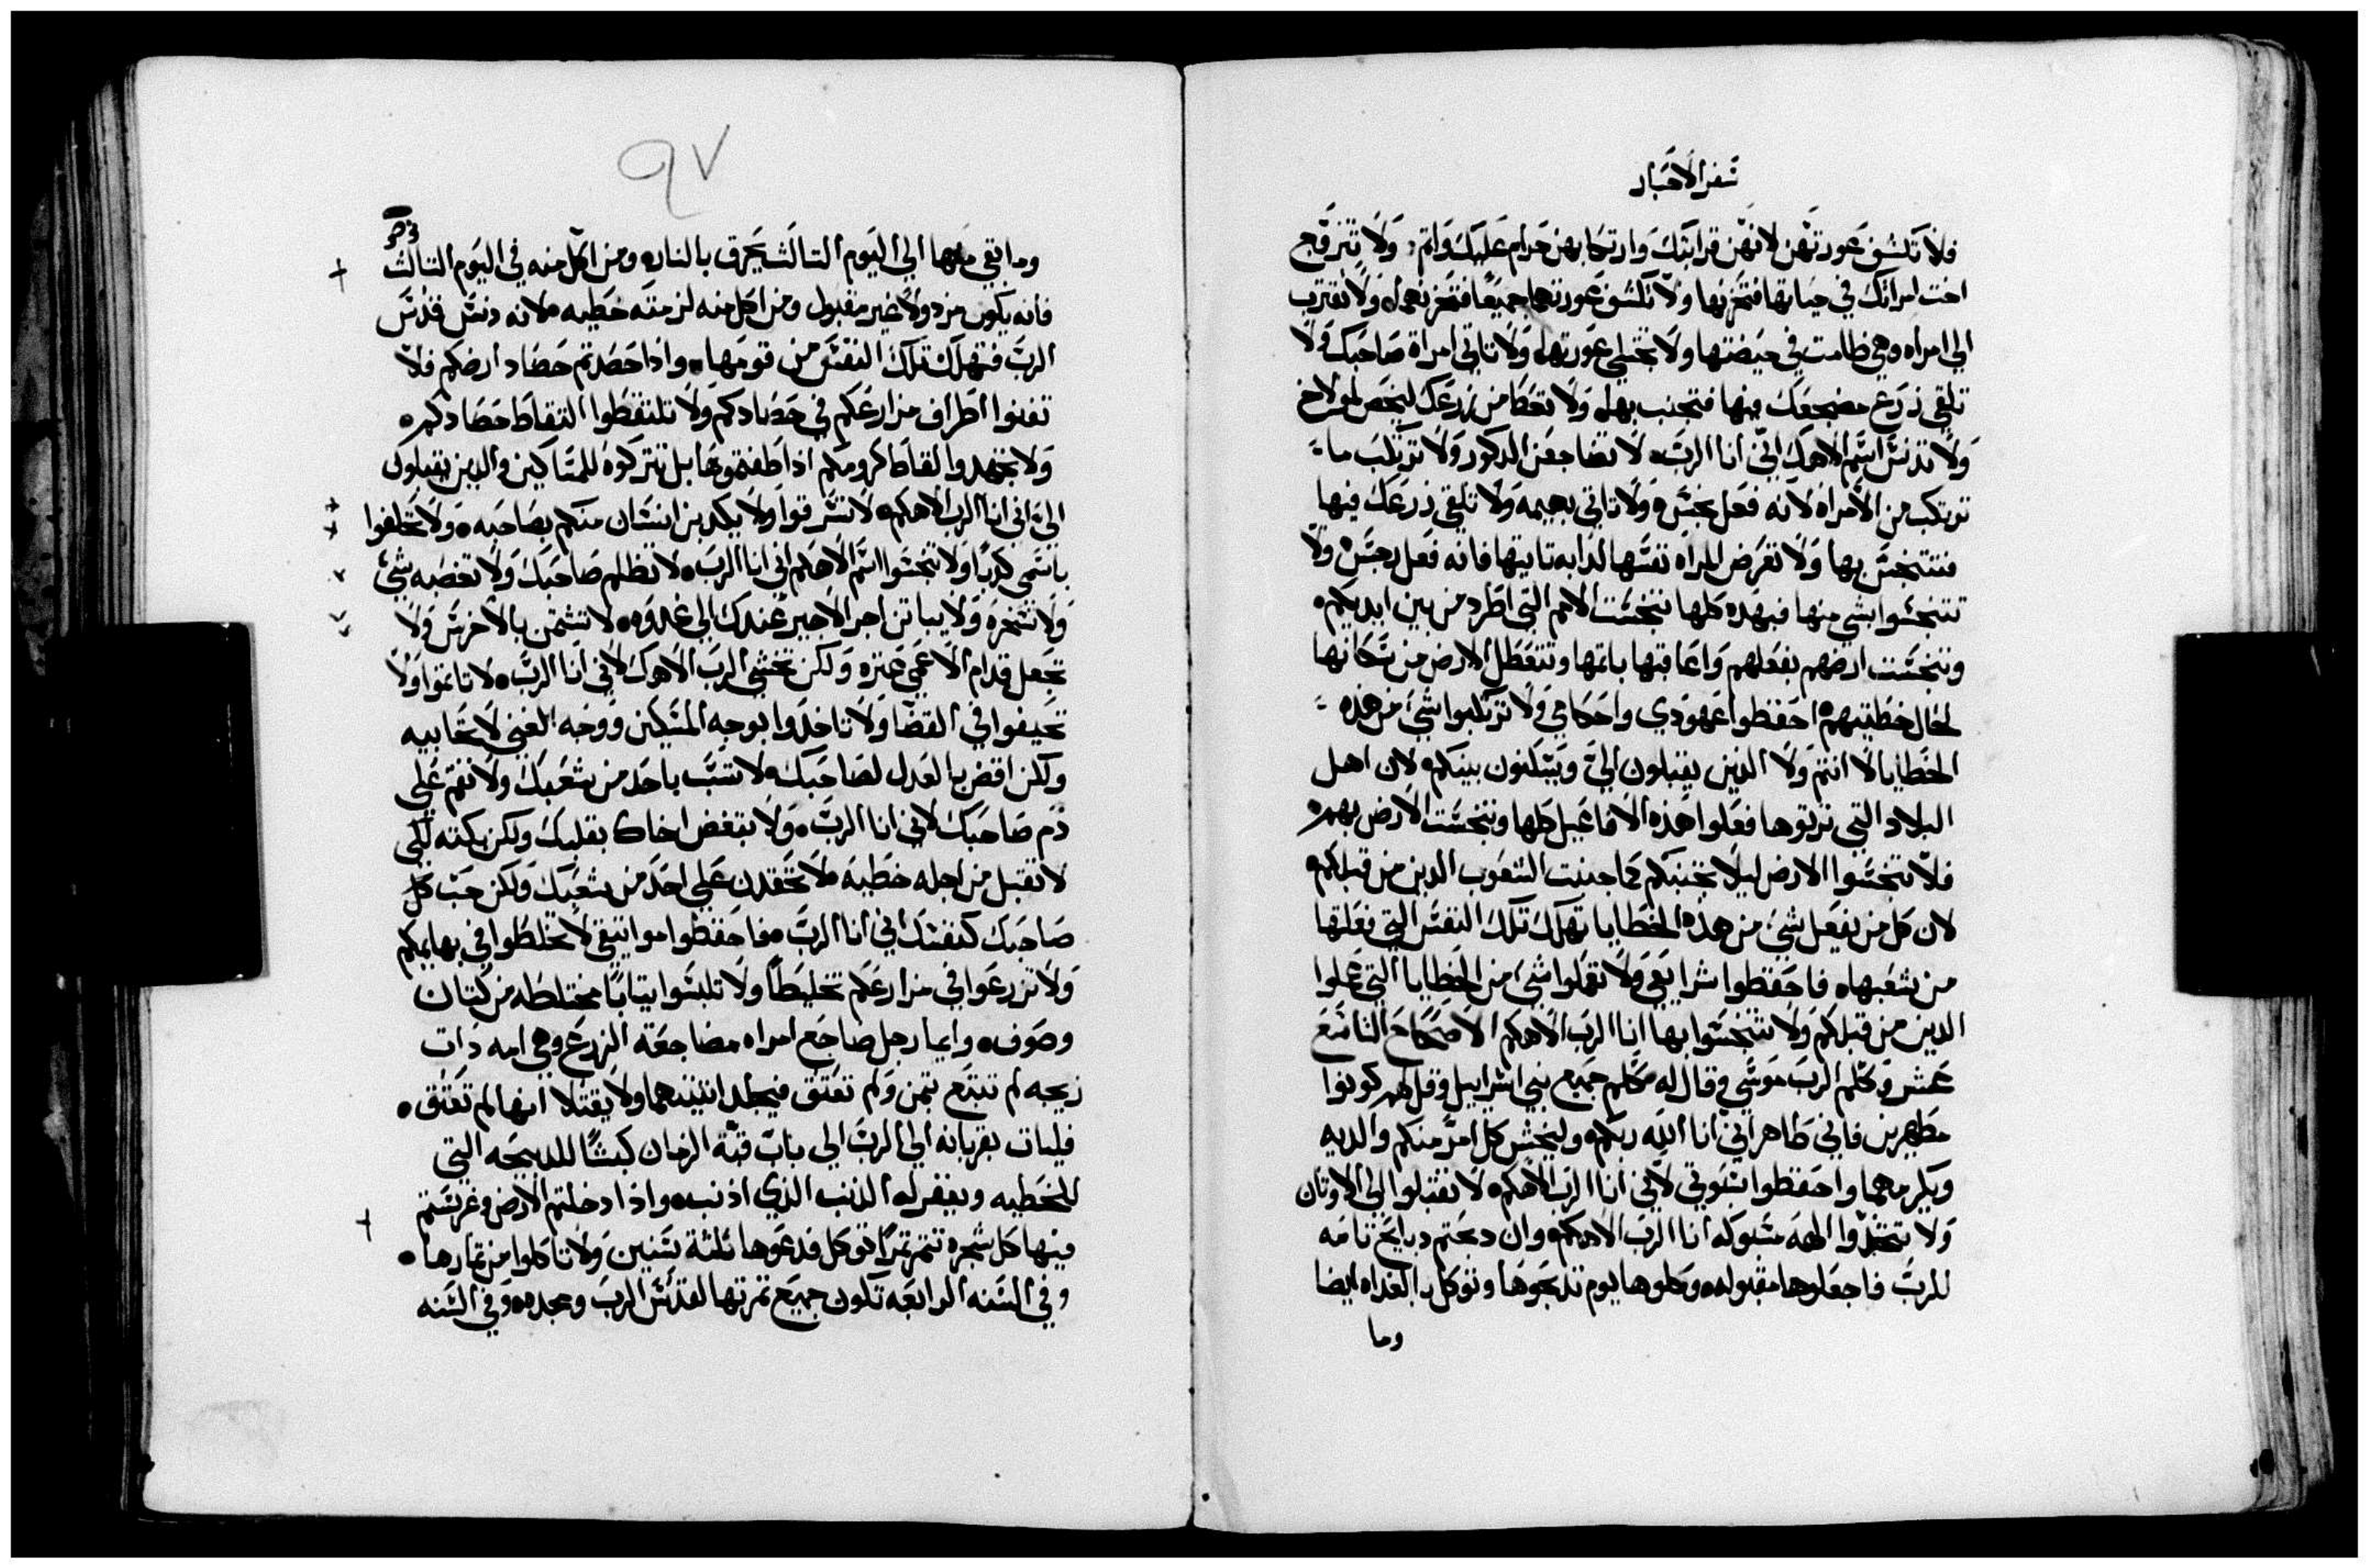 سفر الاحبار
فلا تكشف عورتهن لانهن قرابتك وارتكابهن حرام عليك واتم ولا تتزوج
اخت امراتك في حياتها فتحزنها ولا تكشف عورتهما جميعا فتحزنهما ولا تقترب
الي امراه وهي طامت في حيضتها ولا تجلي عورتها ولا تاتي امراة صاحبك ولا
تلقي زرع مضجعك فيها فتجنب بها ولا تعطا من زرعك ليخص لمولاخ
ولا تدنس اسم الاهك اني انا الرب لا تضاجعن الدكور ولا ترتكب ما
ترتكب من الامراه لانه فعل نجس ولا تاتي بهيمه ولا تلقي زرعك فيها
فتتنجس بها ولا تعرض المراه نفسها لدابه تاتيها فانه فعل رجس ولا
تتنجسوا بشي منها فبهده كلها تنجست الامم التي اطرد من بين ايديكم
وتنجست ارضهم بفعلهم واعاقبها باتمها وتتعطل الارض من سكانها
لحال خطيتهم احفظوا عهودي واحكامي ولا ترتكبوا شي من هذه
الخطايا لا انتم ولا الدين يقبلون الي ويسكنون بينكم لان اهل
البلاد التي ترتوها فعلوا هذه الافاعيل كلها وتنجست الارض بهم
فلا تنجسوا الارض ليلا تجنبكم كما جنبت الشعوب الدين من قبلكم
لان كل من يفعل شي من هده الخطايا تهلك تلك النفس التي فعلتها
من شعبها فاحفظوا شرايعي ولا تعملوا شي من الخطايا التي عملوا
الدين من قبلكم ولا تتنجسوا بها انا الرب الاهكم الاصحاح التاسع
عشر وكلم الرب موسي وقال له كلم جميع بني اسراييل وقل لهم كونوا
مطهرين فاني طاهر اني انا الله ربكم وليخش كل امر منكم والديه
ويكرمهما واحفظوا سبوتي لاني انا الرب الاهكم لا تقبلوا الي الاوتان
ولا تتخدوا الهه مسبوكه انا الرب الاهكم وان دبحتم دبايح تامه
للرب فاجعلوها مقبوله وكلوها يوم تدبحوها وتوكل بالغداه ايضا
وما
٩٧
وما بقي منها الي اليوم التالت يحرق بالنار ومن اكل منه في اليوم التالت
فانه يكون مردولا غير مقبول ومن اكل منه لزمته خطيه لانه دنس قدس
الرب فتهلك تلك النفس من قومها واذا حصدتم حصاد ارضكم فلا
تفنوا اطراف مزارعكم في حصادكم ولا تلتقطوا التقاط حصادكم
ولا تجهدوا لقاط كرومكم اذا قطفتموها بل تتركوه للمساكين والدين يقبلون
الي اني انا الرب الاهكم لا تسرقوا ولا يكدبن انسان منكم بصاحبه ولا تحلفوا
باسمي كدبا ولا تنجسوا اسم الاهكم اني انا الرب لا تظلم صاحبك ولا تغصبه شي
ولا تسخره ولا يباتن اجر الاجير عندك الي غدوه لا تشتمن بالاخرس ولا
تجعل قدام الاعمي عتره ولكن تخشي الرب الاهك لاني انا الرب لا تاتموا ولا
تحيفوا في القضا ولا تاخدوا بوجه المسكين ووجه الغني لا تحابيه
ولكن اقض بالعدل لصاحبك لا تسب باحد من شعبك ولا تقم علي
دم صاحبك لاني انا الرب ولا تبغض اخاك بقلبك ولكن بكته لكي
لا تقبل من اجله خطيه لا تحقدن علي احد من شعبك ولكن حب كل
صاحبك كنفسك اني انا الرب فاحفظوا مواتيقي لا تخلطوا في بهايمكم
ولا تزرعوا في مزارعكم تخليطا ولا تلبسوا تيابا مختلطه من كتان
وصوف وايما رجل ضاجع امراه مضاجعة الزرع وهي امه ذات
زيجه لم تبتع بتمن ولم تعتق فيجلد اتنيهما ولا يقتلا انها لم تعتق
فليات بقربانه الي الرب الي باب قبة الزمان كبشا للدبيحه التي
للخطيه ويغفر له الذنب الذي اذنب واذا دخلتم الارض وغرستم
فيها كل شجره تتمر تمرا توكل فدعوها تلتة سنين ولا تاكلوا من تمارها
وفي السنه الرابعه تكون جميع تمرتها لقدس الرب ومجده وفي السنه